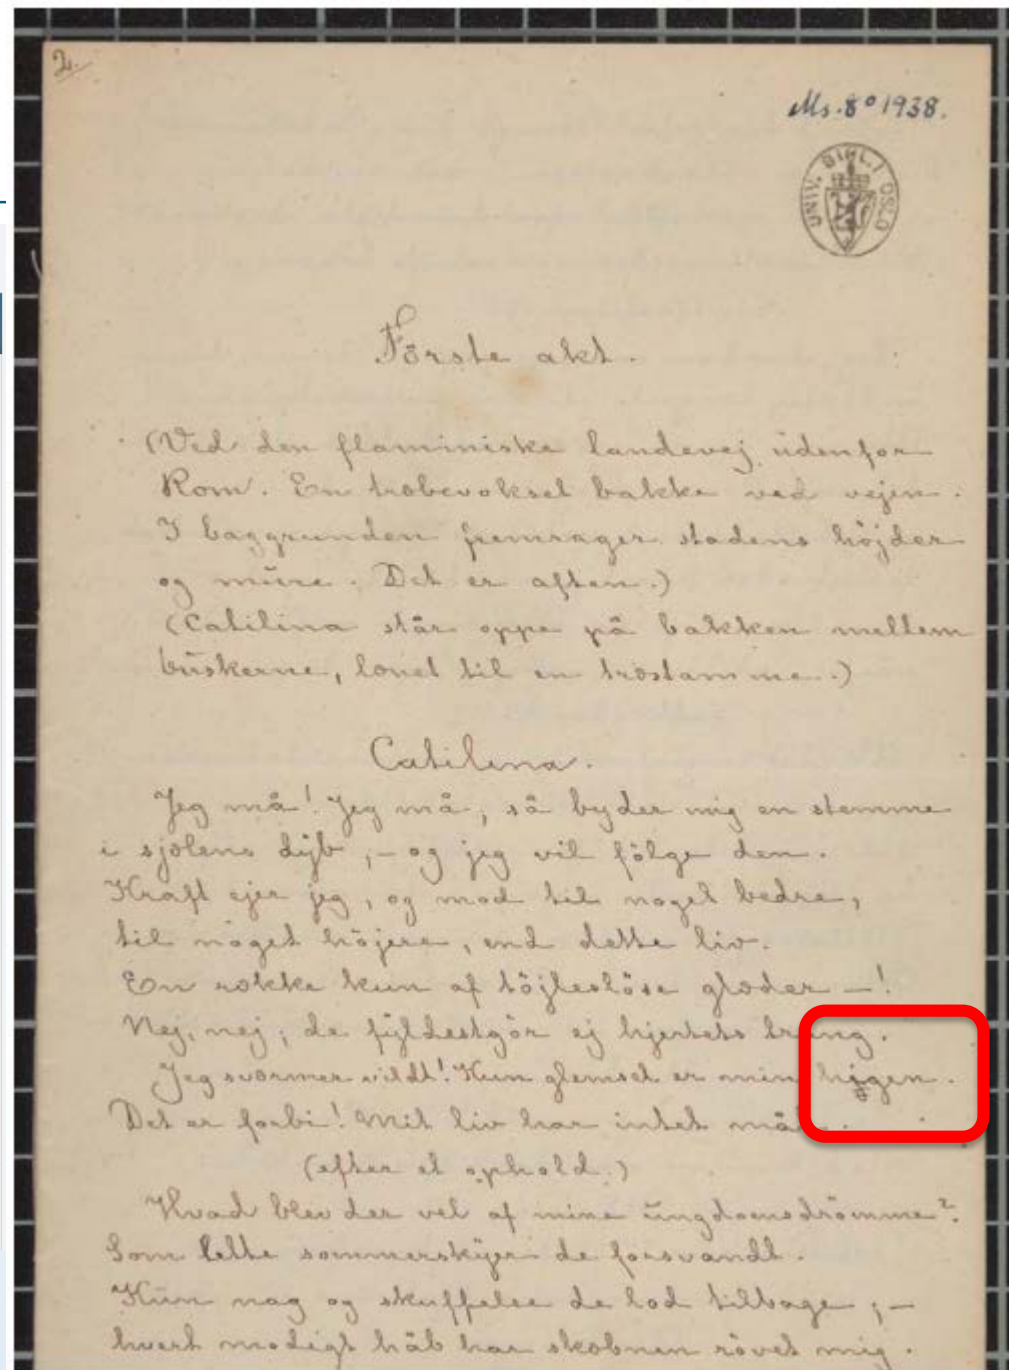 2.
Ms. 8° 1938.
UNIV. BIBL. I OSLO
Förste akt.
(Ved den flaminiske landevej udenfor
Rom. En træbevokset bakke ved vejen.
I baggrunden fremrager stadens höjder
og mure. Det er aften.)
(Catilina står oppe på bakken mellem
buskerne, lænet til en træstamme.)
Catilina.
Jeg må! Jeg må, så byder mig en stemme
i sjælens dyb, – og jeg vil fölge den.
Kraft ejer jeg, og mod til noget bedre,
til noget höjere, end dette liv.
En række kun af töjleslöse glæder –!
Nej, nej; de fyldestgör ej hjertets trang.
Jeg sværmer vildt! Kun glemsel er min
Det er forbi! Mit liv har intet mål.
(efter et ophold.)
Hvad blev der vel af mine ungdomsdrömme?
Som lette sommerskyer de forsvandt.
Kun nag og skuffelse de lod tilbage; –
hvert modigt håb har skæbnen rövet mig.